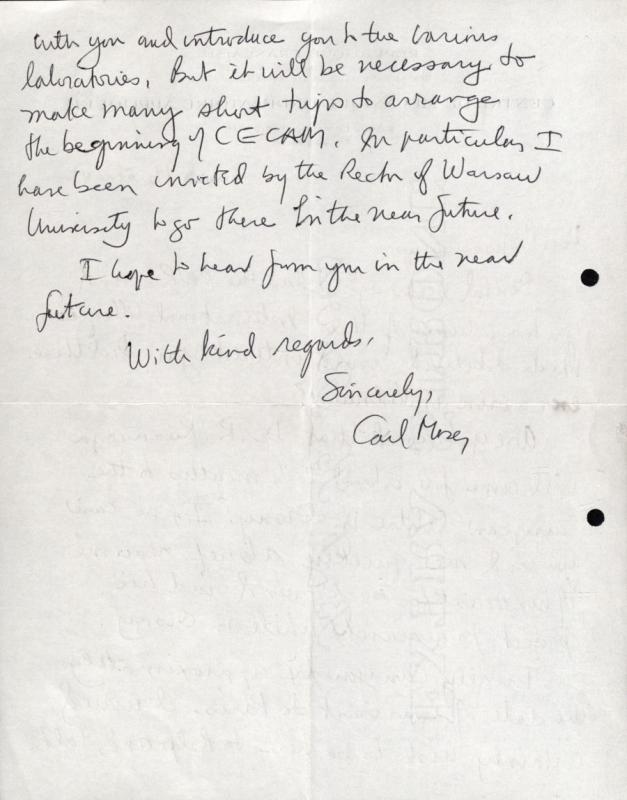 with you and introduce you to the various
laboratories. But it will be necessary to
make many short trips to arrange
the beginning of CECAM. In particular I
have been invited by the Rector of Warsaw
University to go there in the near future.
I hope to hear from you in the near
future.
With kind regards,
Sincerely,
Carl Moser